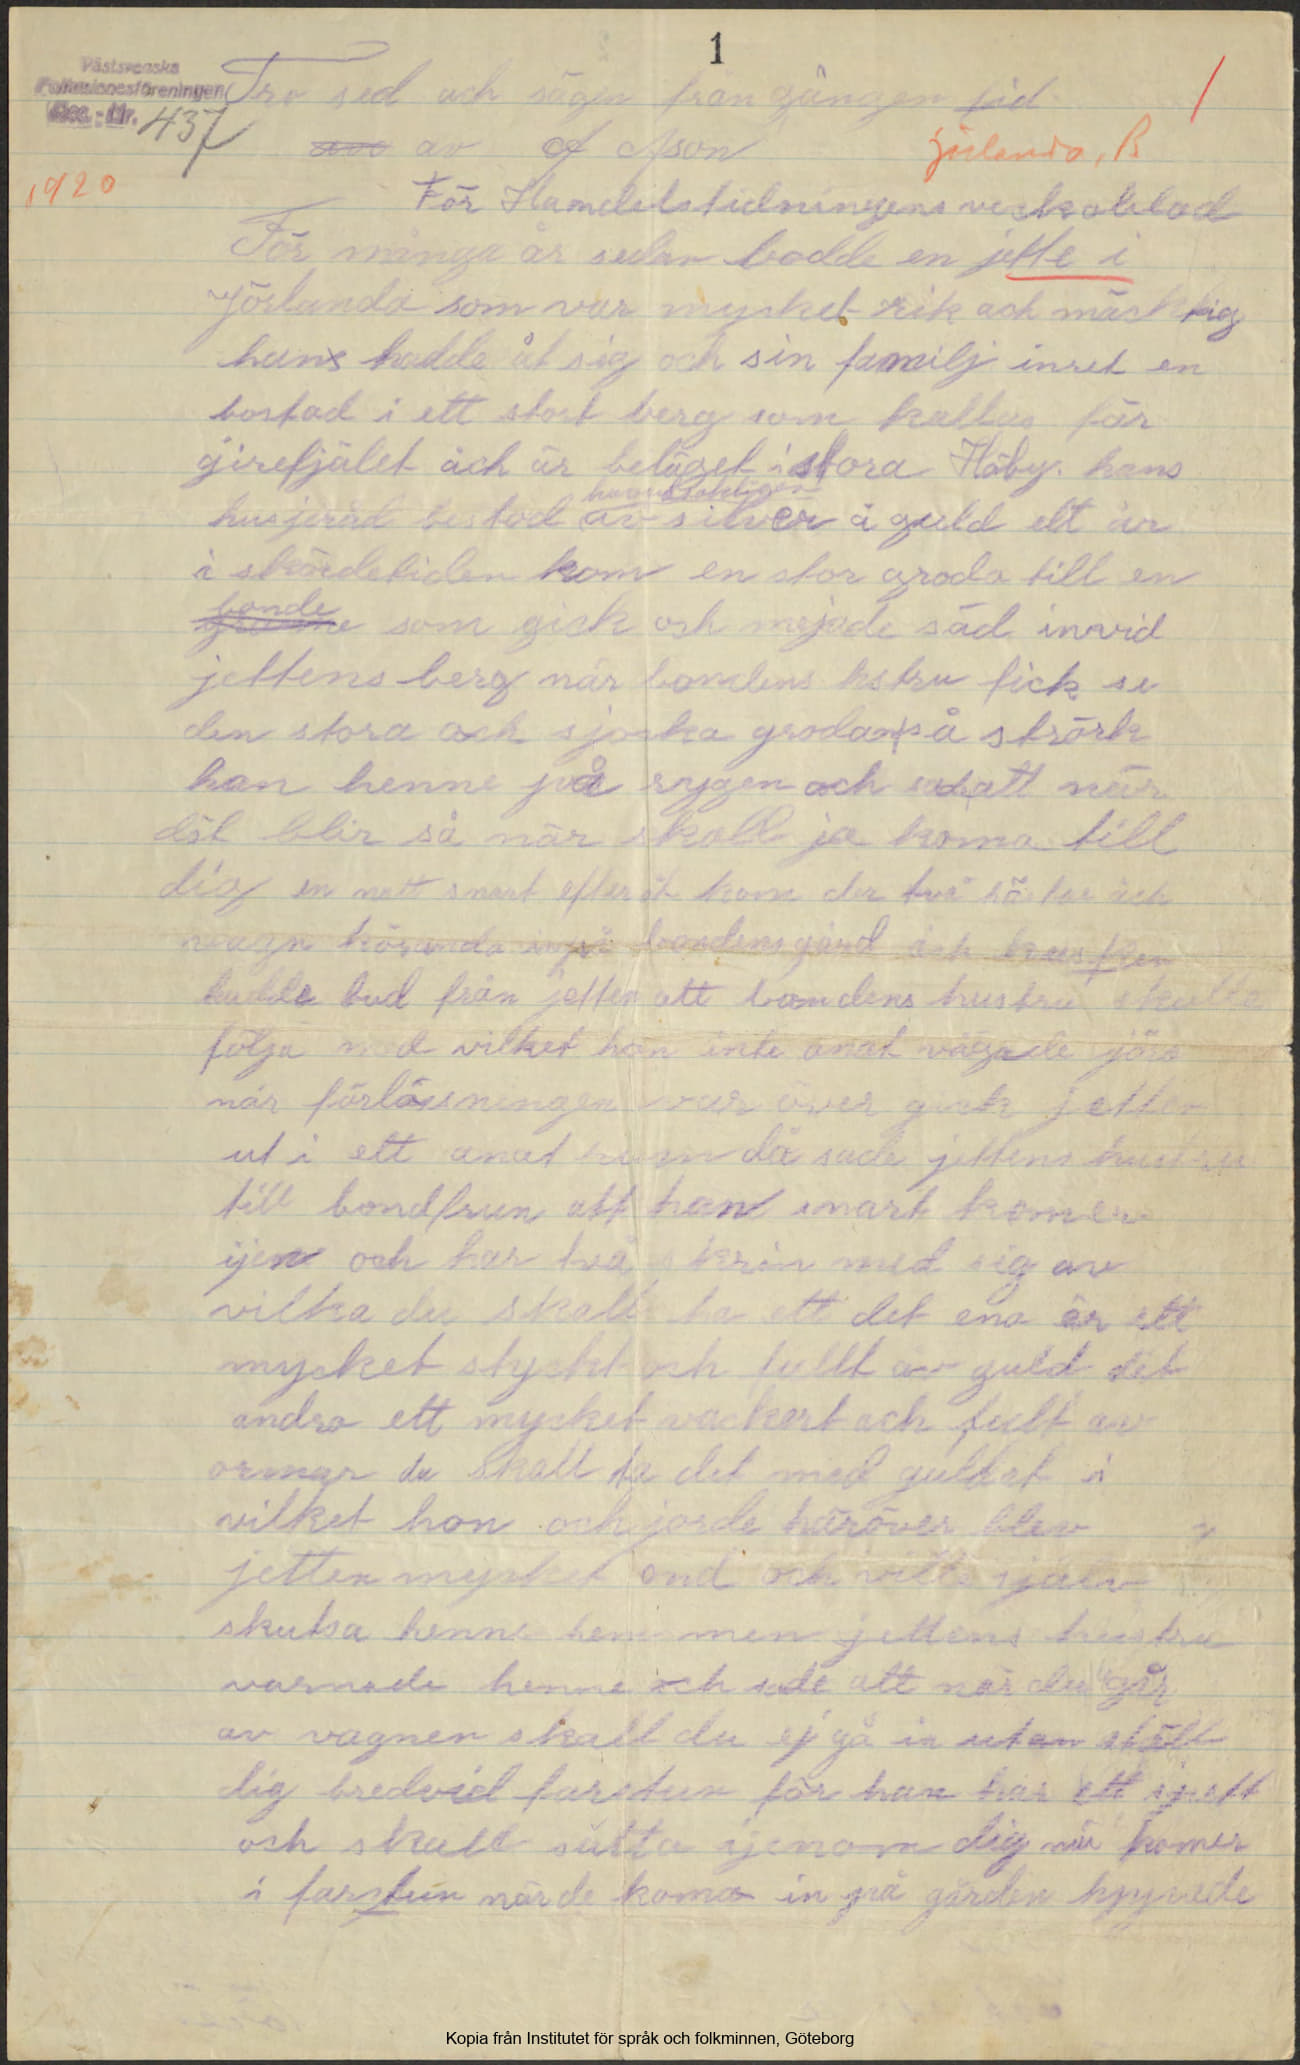 1
Västsvenska
Folkminnesföreningen
Acc.-Nr. 437
Tro sed och sägn från gången tid
av A Ason
Jörlanda, B
1920
För Handelstidningens veckoblad
För många år sedan bodde en jette i
Jörlanda som var mycket rik och mäcktig
hans hadde åt sig och sin familj inret en
bostad i ett stort berg som kallas för
girefjälet åch är beläget i stora Höby. hans
husjeråd bestod huvudsakligen av silver å guld ett år
i skördetiden kom en stor groda till en
bonde som gick och mejade säd invid
jettens berg när bondens hstru fick se
den stora och sjocka grodan så strörk
han henne på rygen och sad att när
döt blir så när skall ja koma till
dig en natt snart efteråt kom der två hästar åch
vagn körande in på bondens gård åch kusken
hadde bud från jetten att bondens hustru skulle
följa med vilket hon inte anat vågade jöra
når förlösningen var över gick jetten
ut i ett anat rum då sade jettens hustru
till bondfrun att han snart komer
ijen och har två skrin med sig av
vilka du skall ta ett det ena är ett
mycket styckt och fullt av guld det
andra ett mycket vackert och fult av
ormar du skall ta det med guldet i
vilket hon och jorde häröver blev
jetten mycket ond och ville själv
skutsa henne hem men jettens hustru
varnade henne och sade att når du går
av vagnen skall du ej gå in utan ställ
dig bredvid farstun för han har ett spett
och skall sätta ijenom dig når komer
i farstun når de koma in på gården
Kopia från Institutet för språk och folkminnen, Göteborg